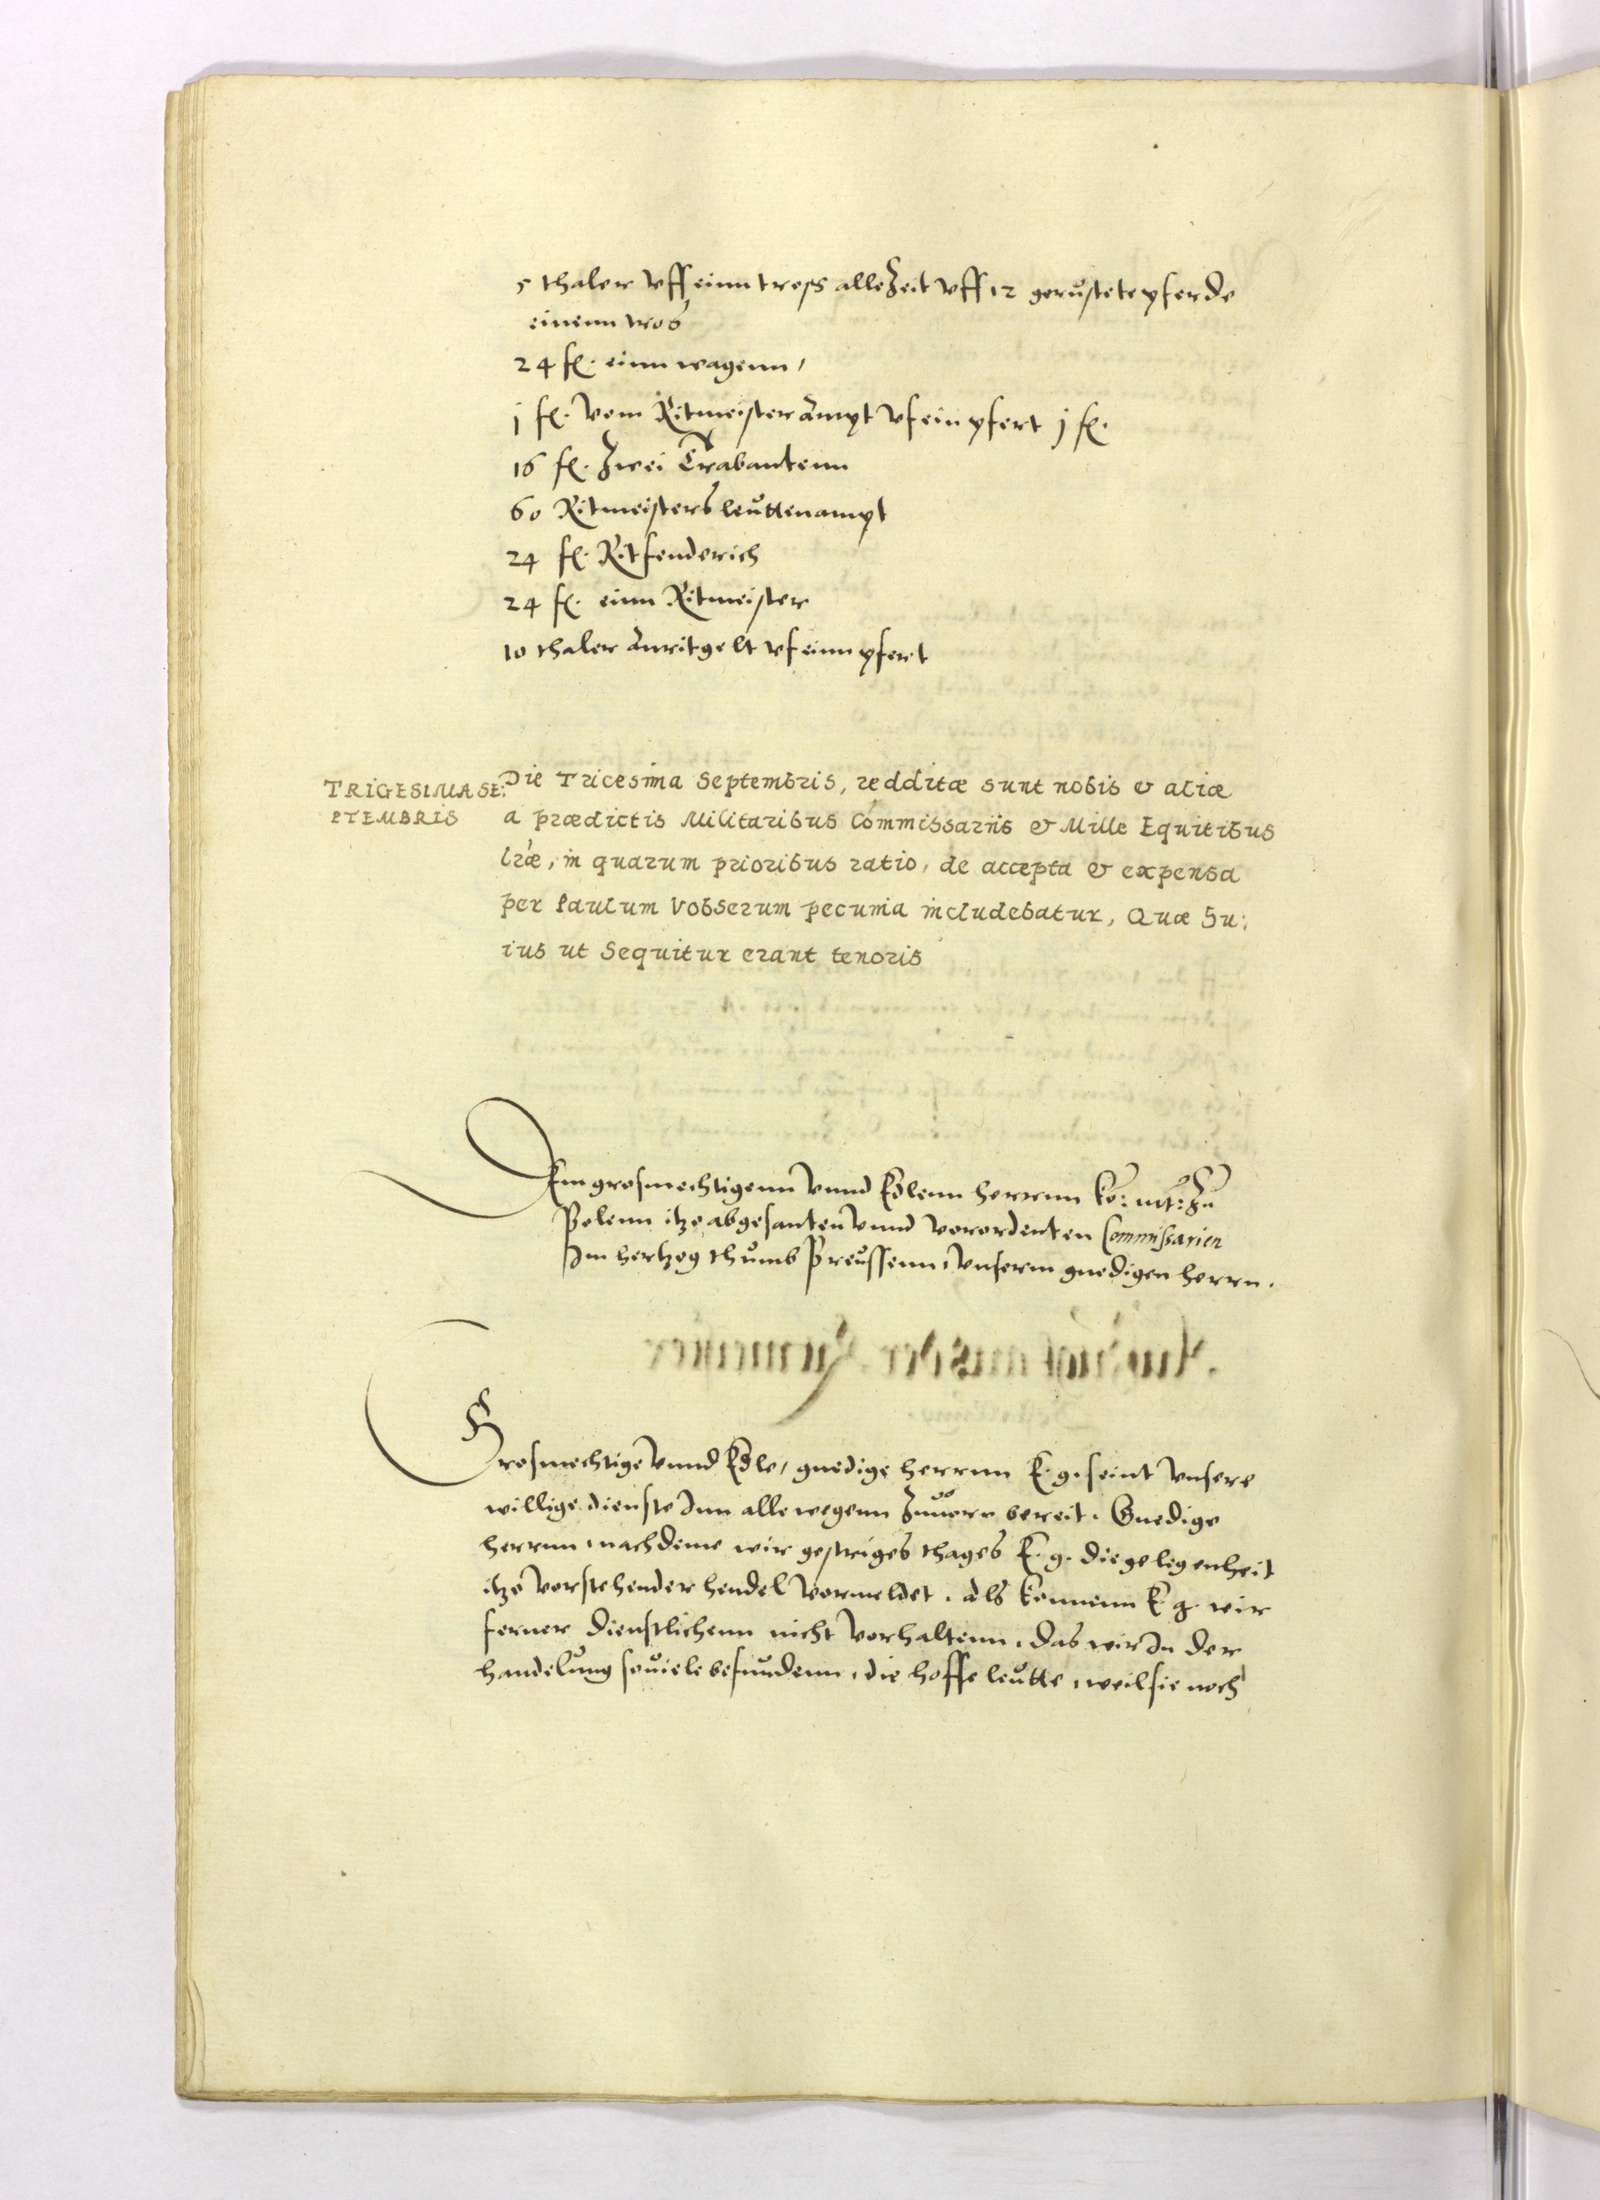 5 thaler vff einn tross alle Zeit vff 12 gerüstete pferde
einenn tros
24 fl. einn wagenn,
j fl. vom Ritmeister Ampt vf ein pfert j fl.
16 fl. Zwei Trabantenn
60 Ritmeisters leüttenampt
24 fl. Ritfenderich
24 fl. einn Ritmeister
10 thaler Anritgelt vf einn pfert
TRIGESIMA SE:
PTEMBRIS
Die Tricesima Septembris, redditæ sunt nobis & aliæ
a prædictis Militaribus Commissariis & Mille Equitibus
lræ, in quarum prioribus ratio, de accepta & expensa
per Paulum Vobserum pecunia includebatur, Quæ Hu:
ius ut Sequitur erant tenoris
Dem grosmechtigenn vnnd Edlenn herrnn Ko: mt: Zu
Polenn itzo abgesanten vnnd vorordenten Commissarien
Im hertzog thumb Preüssenn, vnserm gnedigen herrn.
Grosmechtige vnnd Edle, gnedige herrnn E. g. seint vnsere
willige dienste Inn alle wegenn Zuuorn bereit. Gnedige
herrnn, nachdeme wir gestriges thages E. g. die gelegenheit
itzo vorstehender hendel vormeldet. als konnenn E g. wir
ferner dienstlichenn nicht vorhaltenn, das wir In der
handelüng souiele befundenn, die hoffe leütte, weil sie noch